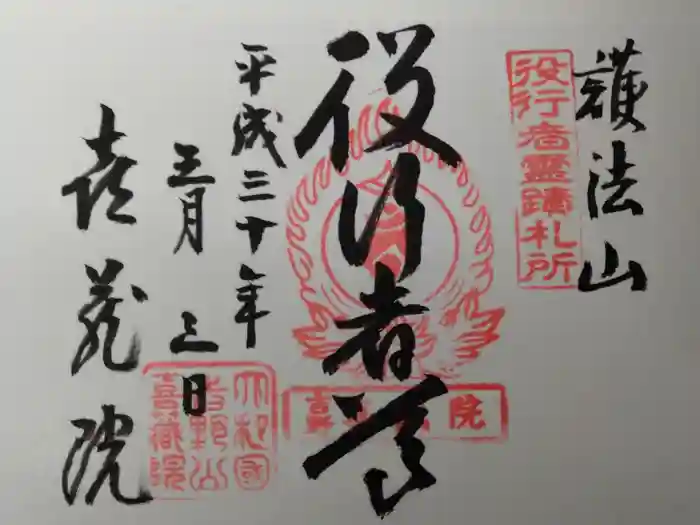 護法山
役行者霊蹟札所
役行者尊
平成三十年
三月三日
大和国
吉野山
喜蔵院
喜蔵院